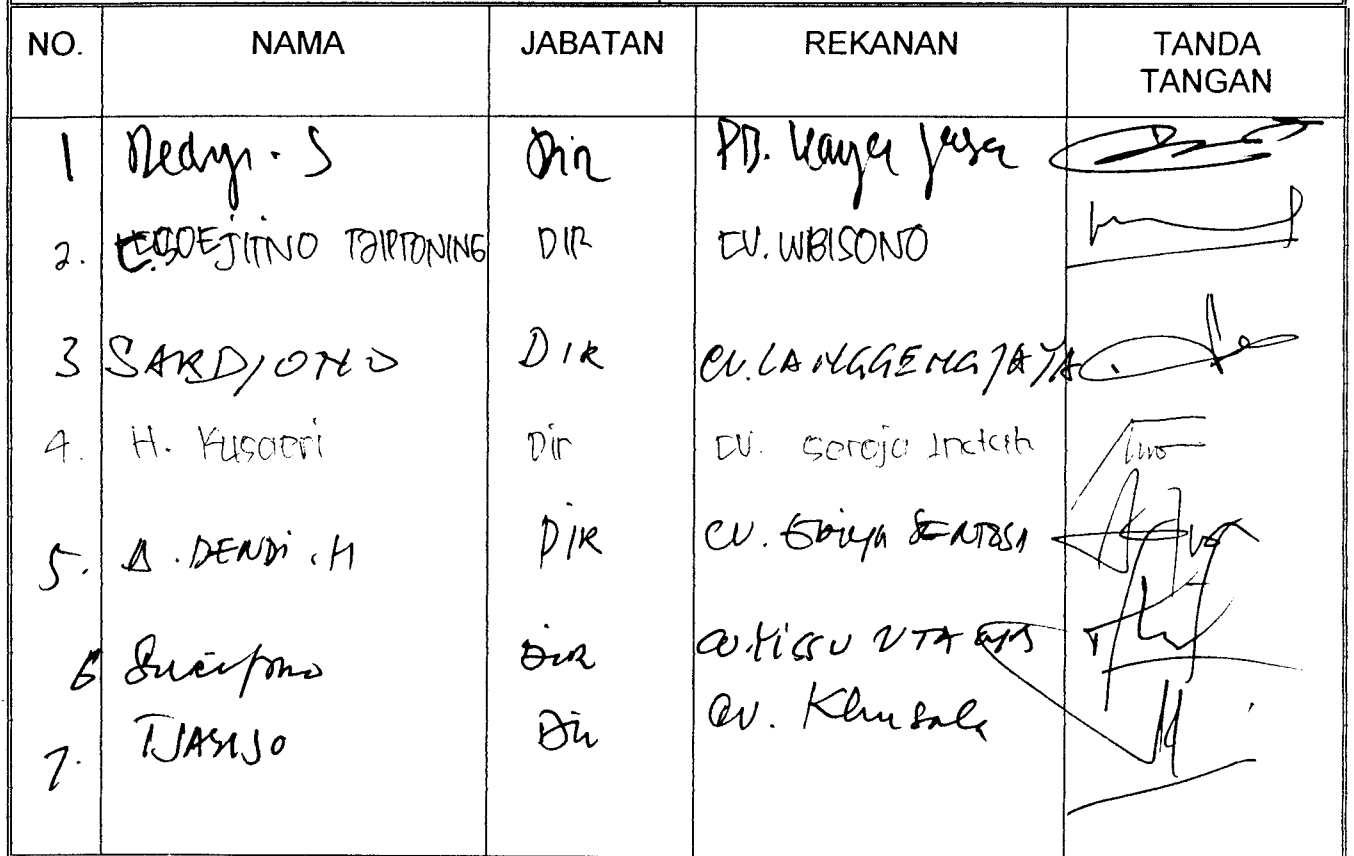 NO. NAMA JABATAN REKANAN TANDA TANGAN
1 Dedy. S Dir PD. Karya Jasa
2. SOEJITNO TJIPTONING DIR CV. WIBISONO
3 SARDJONO DIR CV. LANGGENG JAYA
4. H. Kusaeri Dir CV. Seroja Indah
5. A. DENDI. H DIR CV. SENTOSA
6 Sucipno Dir CV.
7. TJASIJO Dir CV.